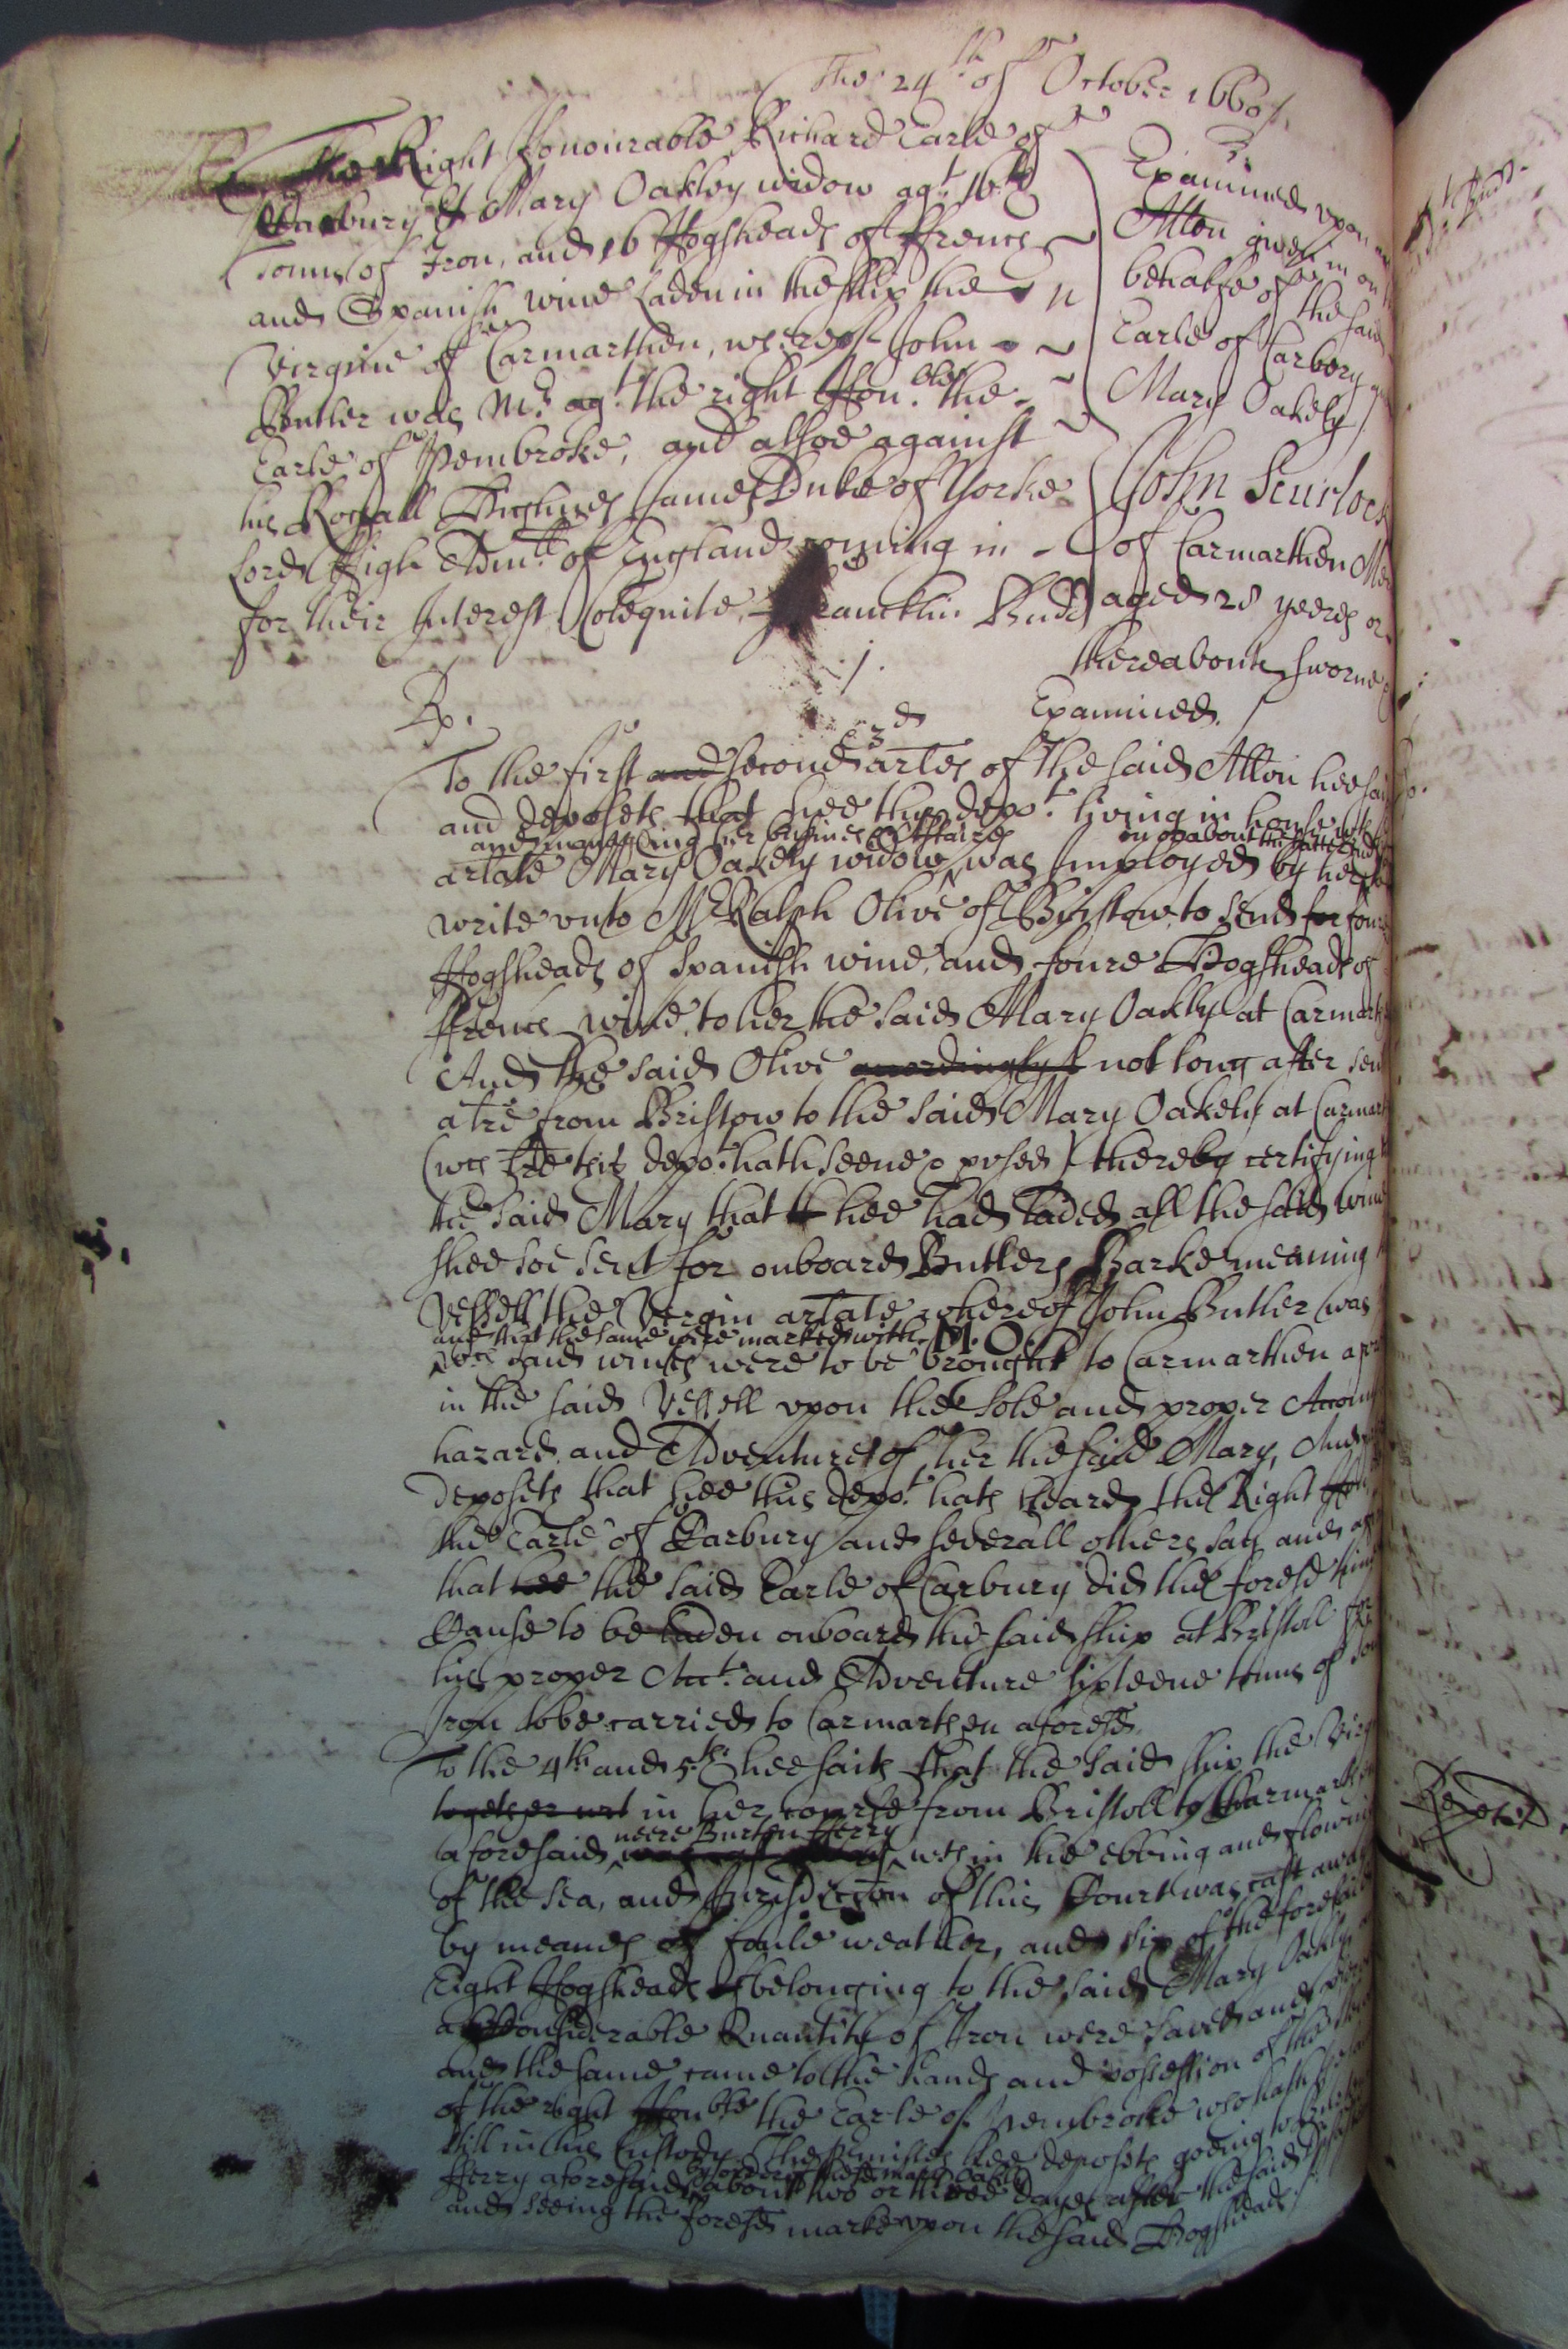 The 24th of October 1660/.
The Right Honourable Richard Earle of
Carbury & Mary Oakley widow agt. 16
Tonns of Iron, and 16 Hogsheads of ffrench
and Spanish wine Laden in the ship the
Virgine of Carmarthen, whereof John
Buttler was Mr. agt. the right Honble. the
Earle of Pembroke, and alsoe against
his Royall Highnes James Duke of Yorke
Lord High Admll of England coming in
for their Interest Colequite. ffrancklin Budd
Examined upon an
Allon given in on the
behalfe of the said
Earle of Carbery and
Mary Oakely
John Scurlock
of Carmarthen
aged 28 yeeres or
thereabouts sworne &
Examined./
Rp. 1.
To the first and second & 3d artles of the said Allon hee saith
and deposeth that hee this depot. living in house with
and managing her busines & affaires
artlate Mary Oakely widow was Imployed by her to
in or about the
write unto Mr Ralph Olive of Bristow to send for foure
Hogsheads of Spanish wine, and foure Hogsheads of
ffrench wine to her the said Mary Oakly at Carmarthen
And the said Olive accordingly not long after sent
a lre from Bristow to the said Mary Oakely at Carmarthen
(wch lre this depot hath seene & prsed) thereby certifying
the said Mary that hee had laded all the said wine
shee soe sent for onboard Butlers Barke meaning the
Vessell the Virgin artlate whereof John Butler was
and that the same were marked with M. O.
wch said wines were to be brought to Carmarthen
in the said Vessell upon the sole and proper Accompt
hazard and Adventure of her the said Mary, And
deposeth that hee this depot. hath heard the Right
the Earle of Carbury and severall others say and
that hee the said Earle of Carbury did the foresd time
Cause to be laden onboard the said ship at Bristoll for
his proper Acct. and Adventure sixteene tonns of
Iron to be carried to Carmarthen aforesd.
To the 4th and 5th. hee saith that the said ship the Virgin
together wth in her course from Bristoll to Carmarthen
aforesaid neere Burton fferry wthin the ebbing and flowing
of the sea, and Jurisdiccon of this Court was cast away
by meanes of foule weather, and six of the foresaid
Eight Hogsheads belonging to the said Mary Oakly
a considerable Quantity of Iron were saved and
and the same came to the hands and possession of the
of the right Honble the Earle of Pembroke who hath
still in his Custody. The premisses hee deposeth goeing to Burton
by order of the sd Mary Oakly
fferry aforesaid about two or three dayes after the said
and seeing the foresd marke upon the said Hogsheads./
Repetit